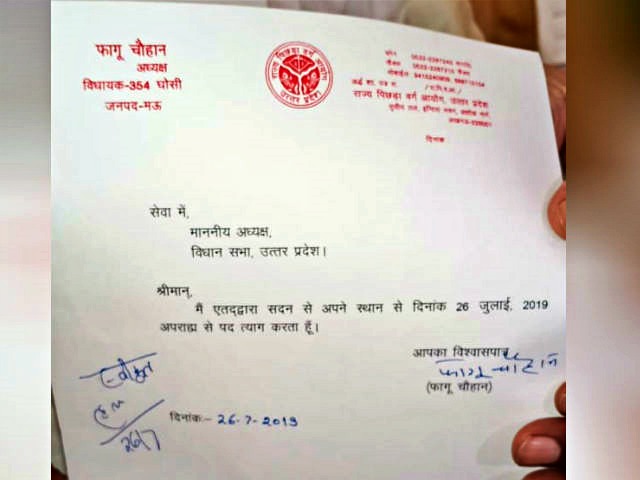 फागू चौहान
अध्यक्ष
विधायक-354 घोसी
जनपद-मऊ
राज्य पिछड़ा वर्ग आयोग
उत्तर प्रदेश
राज्य पिछड़ा वर्ग आयोग, उत्तर प्रदेश
दिनांक
सेवा में,
माननीय अध्यक्ष,
विधान सभा, उत्तर प्रदेश।
श्रीमान्,
मैं एतद्द्वारा सदन से अपने स्थान से दिनांक 26 जुलाई, 2019
अपराह्न से पद त्याग करता हूँ।
आपका विश्वासपात्र
फागू चौहान
(फागू चौहान)
स्वीकृत
26/7
दिनांक:- 26-7-2019